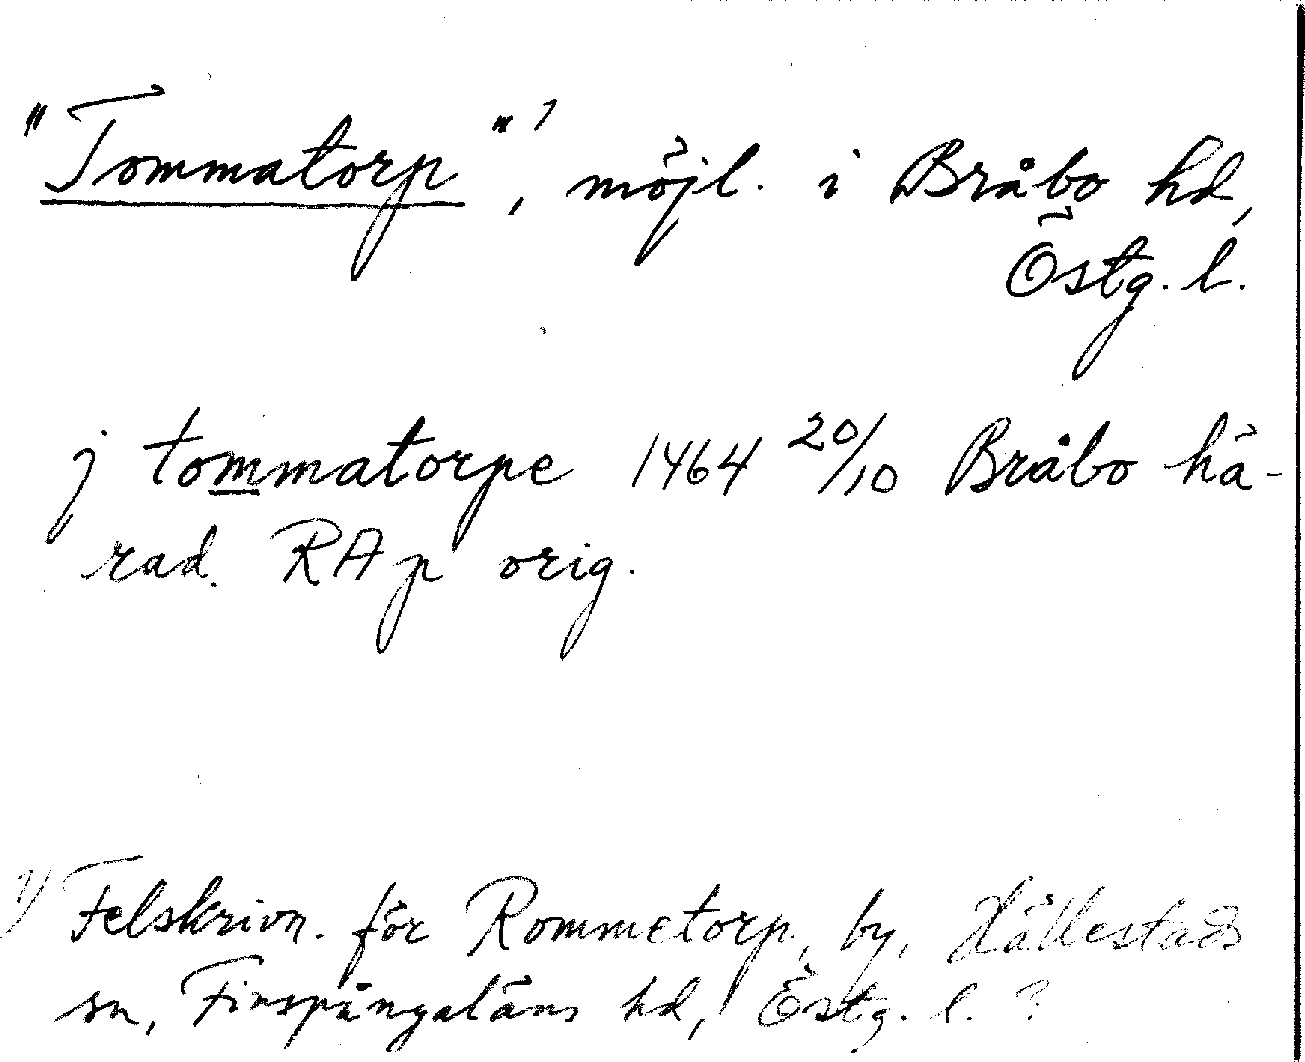 "Tommatorp"¹, möjl. i Bråbo hd,
Östg. l.
j tommatorpe 1464 20/10 Bråbo hä-
rad. RAp orig.
1) Felskrivn. för Rommetorp, by, Hällestads
sn, Finspångaläns hd, Östg. l. ?